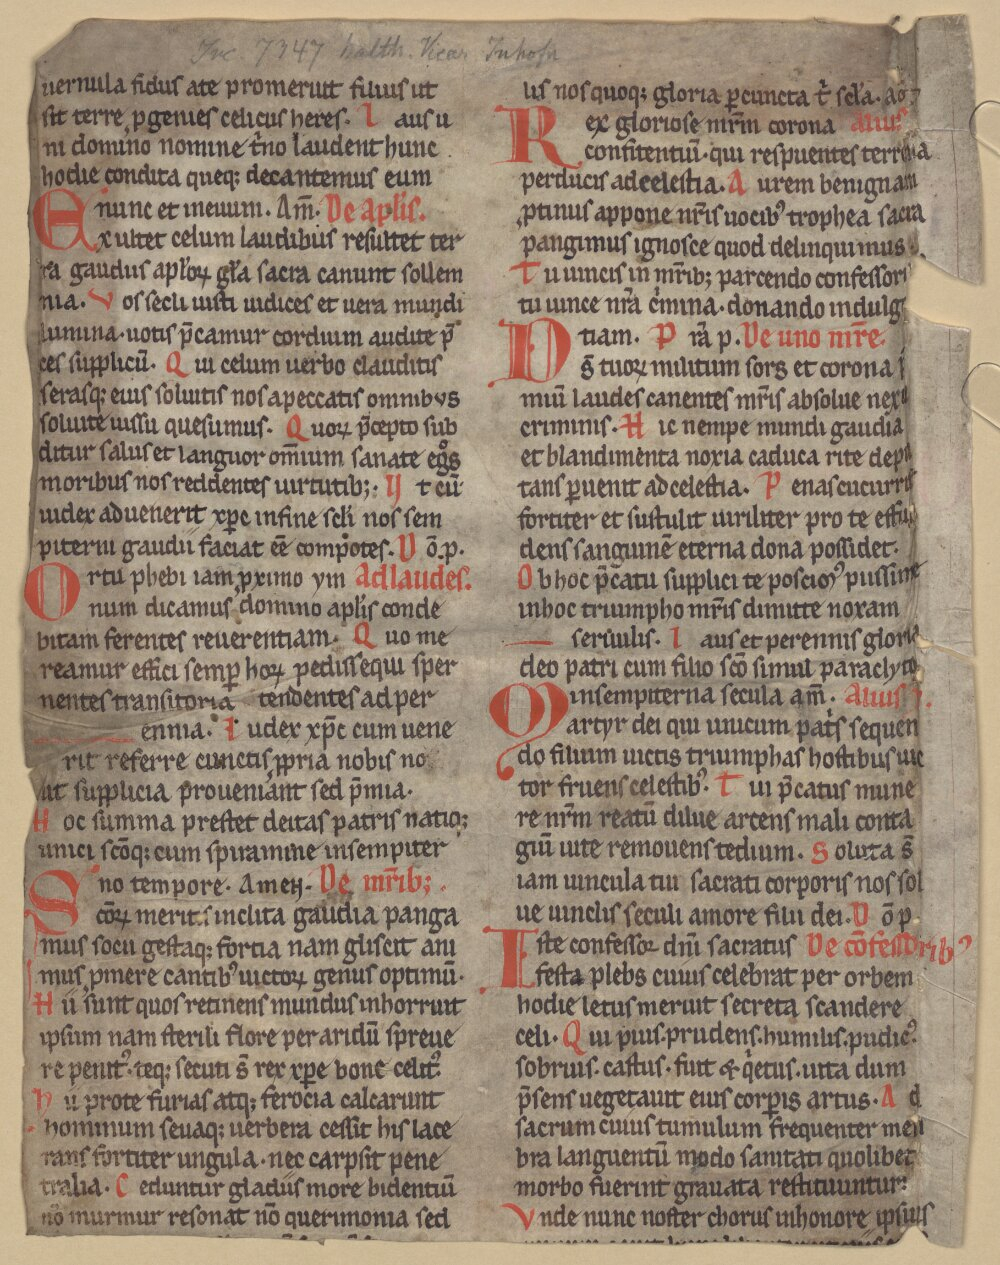 uernula fidus ate promeruit filius ut
sit terre ꝓgenies celicus heres. L aus u
ni domino nomine t̄no laudent hunc
hodie condita queq; decantemus eum
nunc et ineuum. Am̄. De aplis.
Exultet celum laudibus resultet ter
ra gaudiis aplōꝝ gl̄a sacra canunt sollem
nia. V os secli iusti iudices et uera mundi
lumina uotis p̄camur cordium audite p̄
ces supplicū. Q ui celum uerbo clauditis
serasq; eius soluitis nos apeccatis omnibus
soluite iussu quesumus. Q uoꝝ p̄cepto sub
ditur salus et languor om̄ium sanate egͦs
moribus nos reddentes uirtutib;. U t cū
iudex aduenerit xp̄c infine scli nos sem
piterni gaudii faciat eē compotes. D ō. p.
Ortu phebi iam ꝓximo ym Adlaudes.
num dicamus domino aplis conde
bitam ferentes reuerentiam. Q uo me
reamur effici semꝑ hoꝝ pedissequi sper
nentes transitoria tendentes ad per
ennia. I udex xp̄c cum uene
rit referre cunctis ꝓpria nobis no
ut supplicia proueniant sed p̄mia.
H oc summa prestet deitas patris natiq;
unici scōq; cum spiramine insempiter
no tempore. Amen. De mr̄ib;.
Scōꝝ meritis inclita gaudia panga
mus socii gestaq; fortia nam gliscit ani
mus ꝓmere cantibꝰ uictoꝝ genus optimū.
H ii sunt quos retinens mundus inhorruit
ipsum nam sterili flore per aridū spreue
re penitꝰ. teq; secuti s̄ rex xp̄e bone celitꝰ
h ii prote furias atq; ferocia calcarunt
hominum seuaq; uerbera cessit his lace
rans fortiter ungula. nec carpsit pene
tralia. C eduntur gladiis more bidentiū
nō murmur resonat nō querimonia sed
lis nos quoq; gloria ꝑcuncta t̄ scl̄a.
Rex gloriose mr̄m corona alius
confitentiū. qui respuentes terrena
perducis ad celestia. A urem benignam
ꝓtinus appone nr̄is uocibꝰ trophea sacra
pangimus ignosce quod delinquimus.
T u uincis in mr̄ib; parcendo confessori
tu uince nr̄a c̄mina. donando indulg
tiam. P r̄a p. De uno mr̄e.
Ds̄ tuoꝝ militum sors et corona
miū laudes canentes mr̄is absolue nexu
criminis. H ic nempe mundi gaudia
et blandimenta noxia caduca rite depu
tans ꝑuenit ad celestia. P enas cucurrit
fortiter et sustulit uiriliter pro te effun
dens sanguinē eterna dona possidet.
O b hoc p̄catu supplici te poscimꝰ piissime
inhoc triumpho mr̄is dimitte noxam
seruulis. L aus et perennis gloria
deo patri cum filio scō simul paraclyto
insempiterna secula am̄. Alius
Martyr dei qui unicum pat̄s sequen
do filium uictis triumphas hostibus uic
tor fruens celestibꝰ. T ui p̄catus mune
re nr̄m reatū dilue arcens mali conta
giū uite remouens tedium. S oluta s̄
iam uincula tui sacrati corporis nos sol
ue uinclis seculi amore filii dei. D ō p.
Iste confessor dn̄i sacratus De cōfessoribꝰ
festa plebs cuius celebrat per orbem
hodie letus meruit secreta scandere
celi. Q ui pius. prudens. humilis. pudicꝰ.
sobrius. castus. fuit & q̄etus. uita dum
p̄sens uegetauit eius corꝑis artus. A d
sacrum cuius tumulum frequenter mem
bra languentū modo sanitati quolibet
morbo fuerint grauata restituuntur.
Vnde nunc noster chorus inhonore ipsius